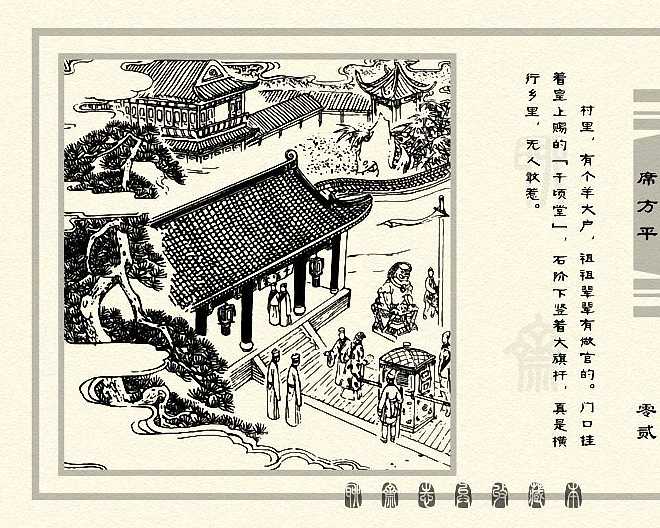 席方平
零贰
村里，有个羊大户，祖祖辈辈有做官的。门口挂
着皇上赐的「千顷堂」，石阶下竖着大旗杆，真是横
行乡里，无人敢惹。